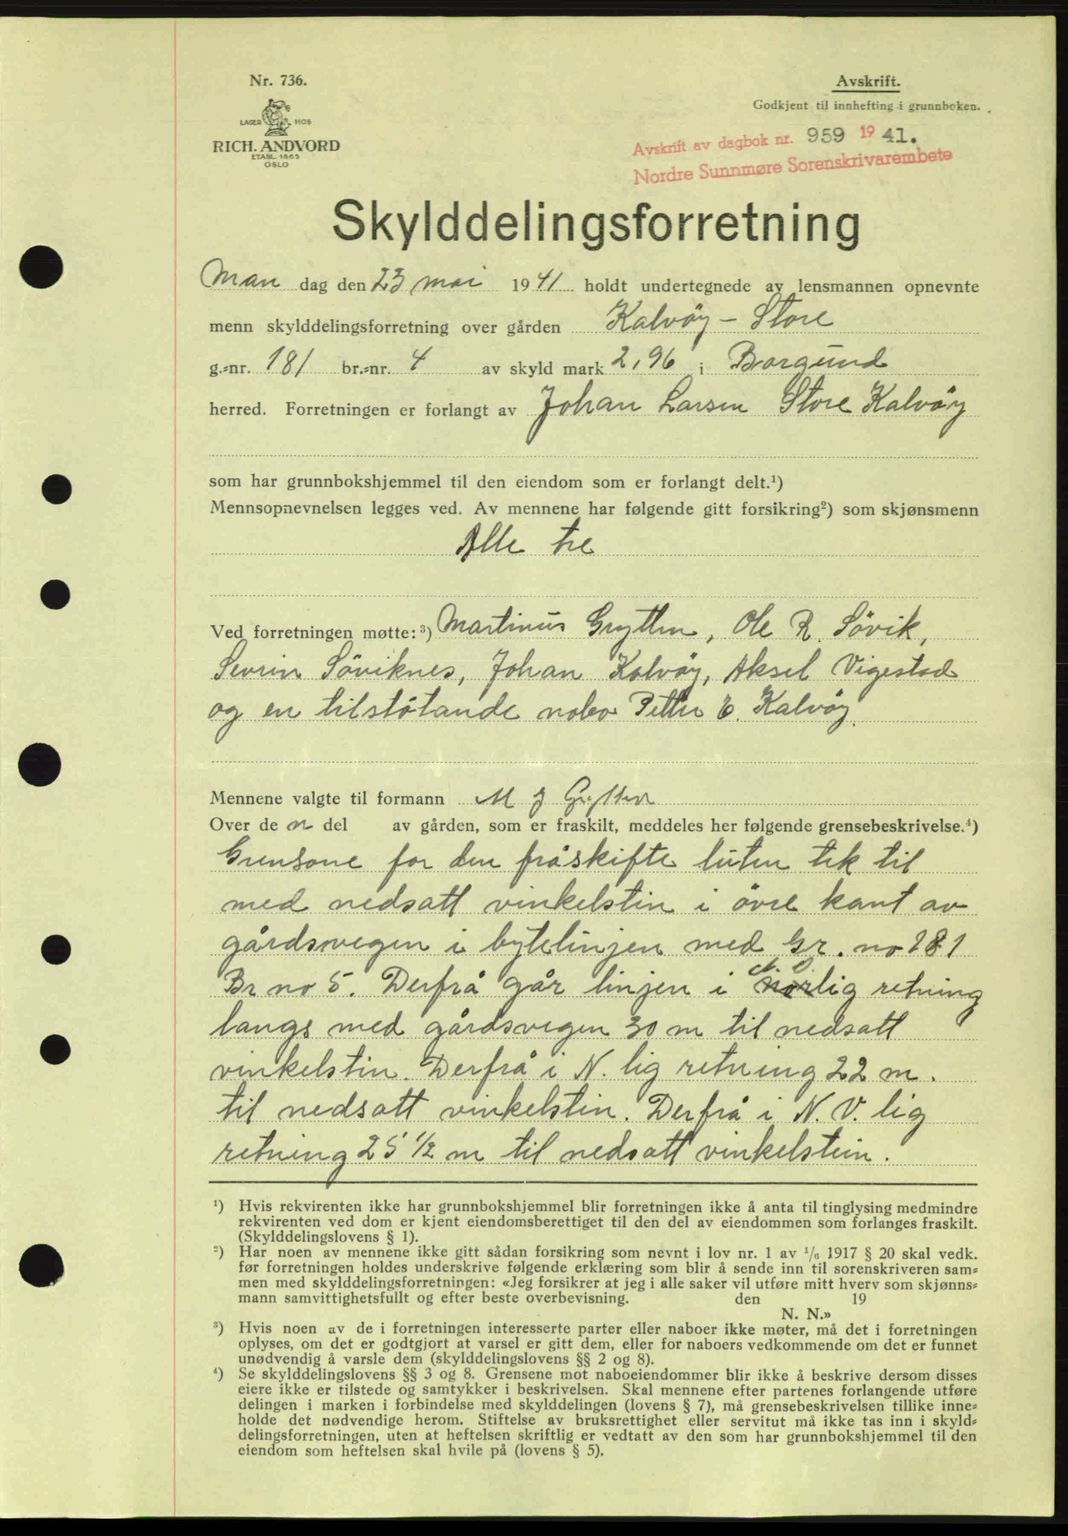 Nr. 736.
LAGER HOS
RICH. ANDVORD
ETABL. 1865
OSLO
Avskrift.
Godkjent til innhefting i grunnboken.
Avskrift av dagbok nr. 959 1941.
Nordre Sunnmøre Sorenskrivarembete
Skylddelingsforretning
Man dag den 23 mai 1941 holdt undertegnede av lensmannen opnevnte
menn skylddelingsforretning over gården Kalvöy - Store
g.=nr. 181 br.=nr. 4 av skyld mark 2,96 i Borgund
herred. Forretningen er forlangt av Johan Larsen Store Kalvöy
som har grunnbokshjemmel til den eiendom som er forlangt delt.¹)
Mennsopnevnelsen legges ved. Av mennene har følgende gitt forsikring²) som skjønsmenn
Alle tre
Ved forretningen møtte:³) Martinus Grytten, Ole R. Sövik,
Sevrin Söviknes, Johan Kalvöy, Aksel Vigestad
og en tilstötande nabo Petter E. Kalvöy.
Mennene valgte til formann M J Grytten
Over de n del av gården, som er fraskilt, meddeles her følgende grensebeskrivelse.⁴)
Grensone for den fråskifte luten tek til
med nedsatt vinkelstin i övre kant av
gårdsvegen i bytelinjen med Gr. no 181
Br no 5. Derfrå går linjen i lig retning
langs med gårdsvegen 30 m til nedsatt
vinkelstin. Derfrå i N. lig retning 22 m.
til nedsatt vinkelstin. Derfrå i N. V. lig
retning 25 1/2 m til nedsatt vinkelstein.
¹) Hvis rekvirenten ikke har grunnbokshjemmel blir forretningen ikke å anta til tinglysing medmindre
rekvirenten ved dom er kjent eiendomsberettiget til den del av eiendommen som forlanges fraskilt.
(Skylddelingslovens § 1).
²) Har noen av mennene ikke gitt sådan forsikring som nevnt i lov nr. 1 av ¹/₆ 1917 § 20 skal vedk.
før forretningen holdes underskrive følgende erklæring som blir å sende inn til sorenskriveren sam=
men med skylddelingsforretningen: «Jeg forsikrer at jeg i alle saker vil utføre mitt hverv som skjønns=
mann samvittighetsfullt og efter beste overbevisning. den 19
N. N.»
³) Hvis noen av de i forretningen interesserte parter eller naboer ikke møter, må det i forretningen
oplyses, om det er godtgjort at varsel er gitt dem, eller for naboers vedkommende om det er funnet
unødvendig å varsle dem (skylddelingslovens §§ 2 og 8).
⁴) Se skylddelingslovens §§ 3 og 8. Grensene mot naboeiendommer blir ikke å beskrive dersom disses
eiere ikke er tilstede og samtykker i beskrivelsen. Skal mennene efter partenes forlangende utføre
delingen i marken i forbindelse med skylddelingen (lovens § 7), må grensebeskrivelsen tillike inne=
holde det nødvendige herom. Stiftelse av bruksrettighet eller servitut må ikke tas inn i skyld=
delingsforretningen, uten at heftelsen skriftlig er vedtatt av den som har grunnbokshjemmel til den
eiendom som heftelsen skal hvile på (lovens § 5).